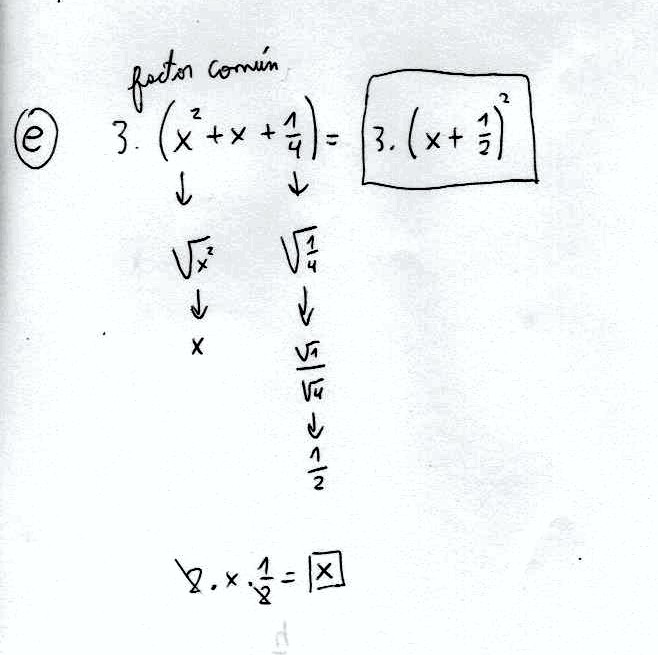 factor común
e 3. (x² + x + 1/4) = 3. (x + 1/2)²
↓ ↓
√x² √1/4
↓ ↓
x √1/√4
↓
1/2
2 . x . 1/2 = x